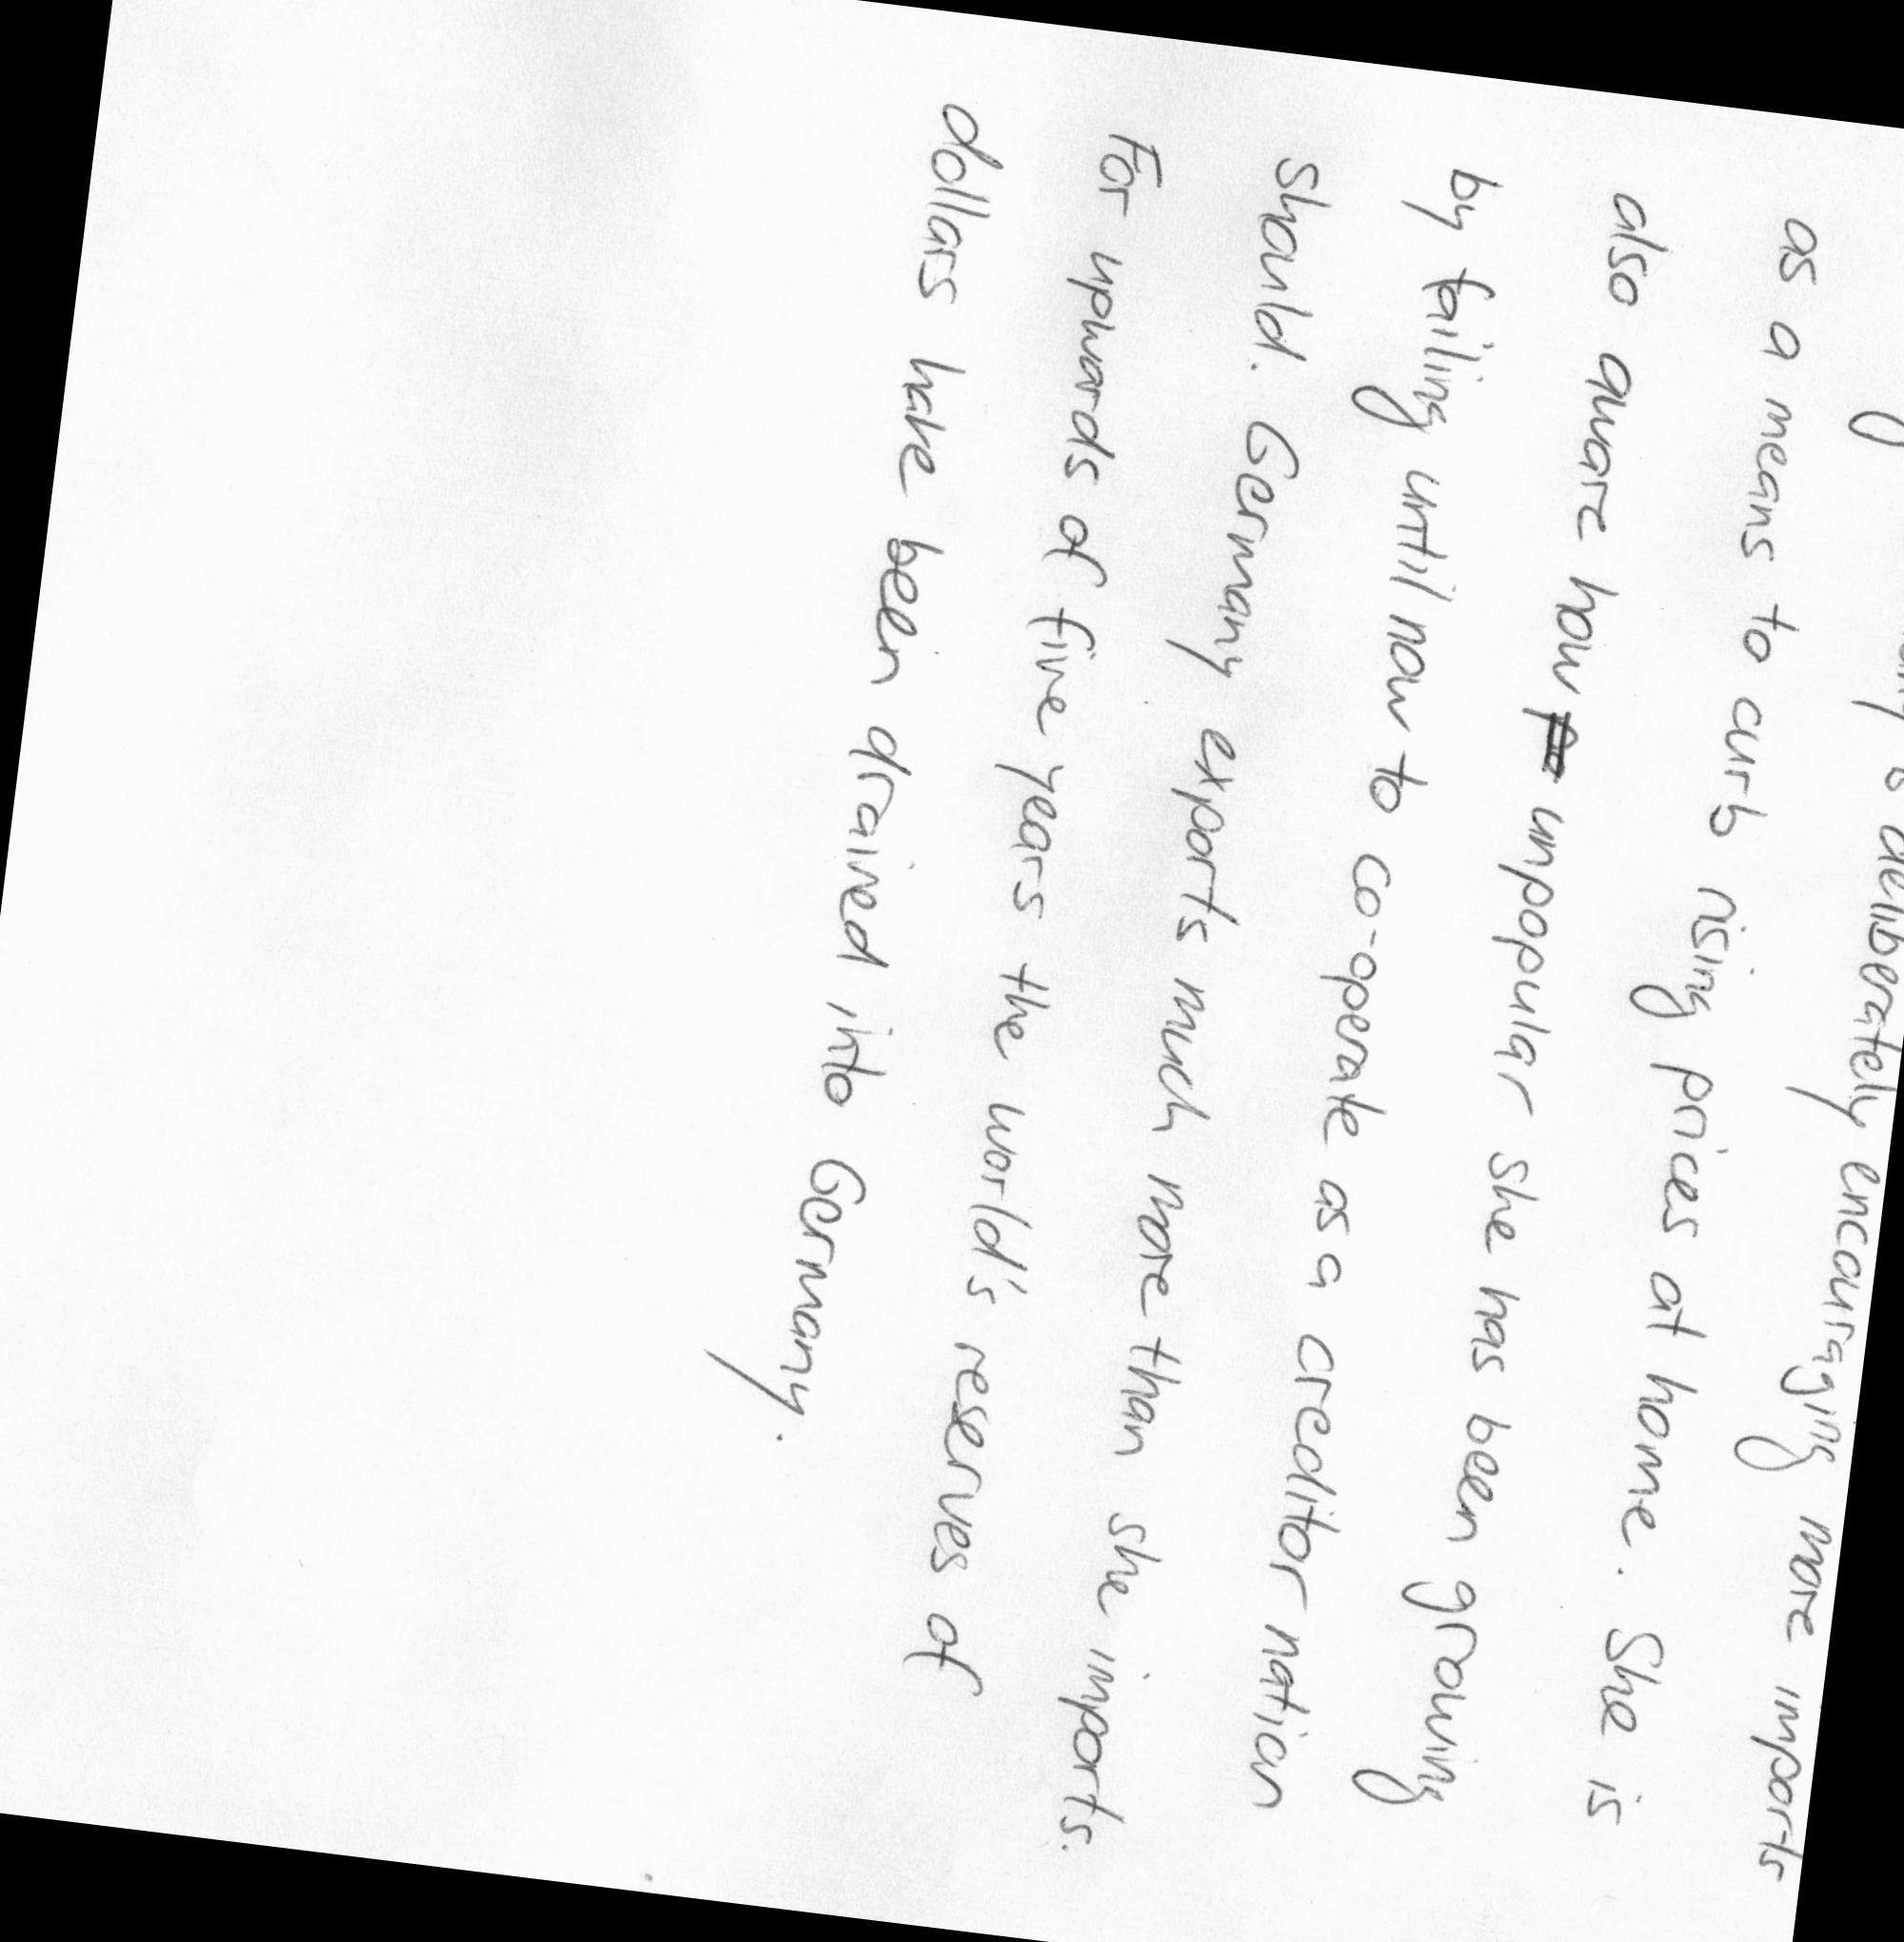 deliberately encouraging more imports
as a means to curb rising prices at home. She is
also aware how unpopular she has been growing
by failing until now to co-operate as a creditor nation
should. Germany exports much more than she imports.
For upwards of five years the world's reserves of
dollars have been drained into Germany.